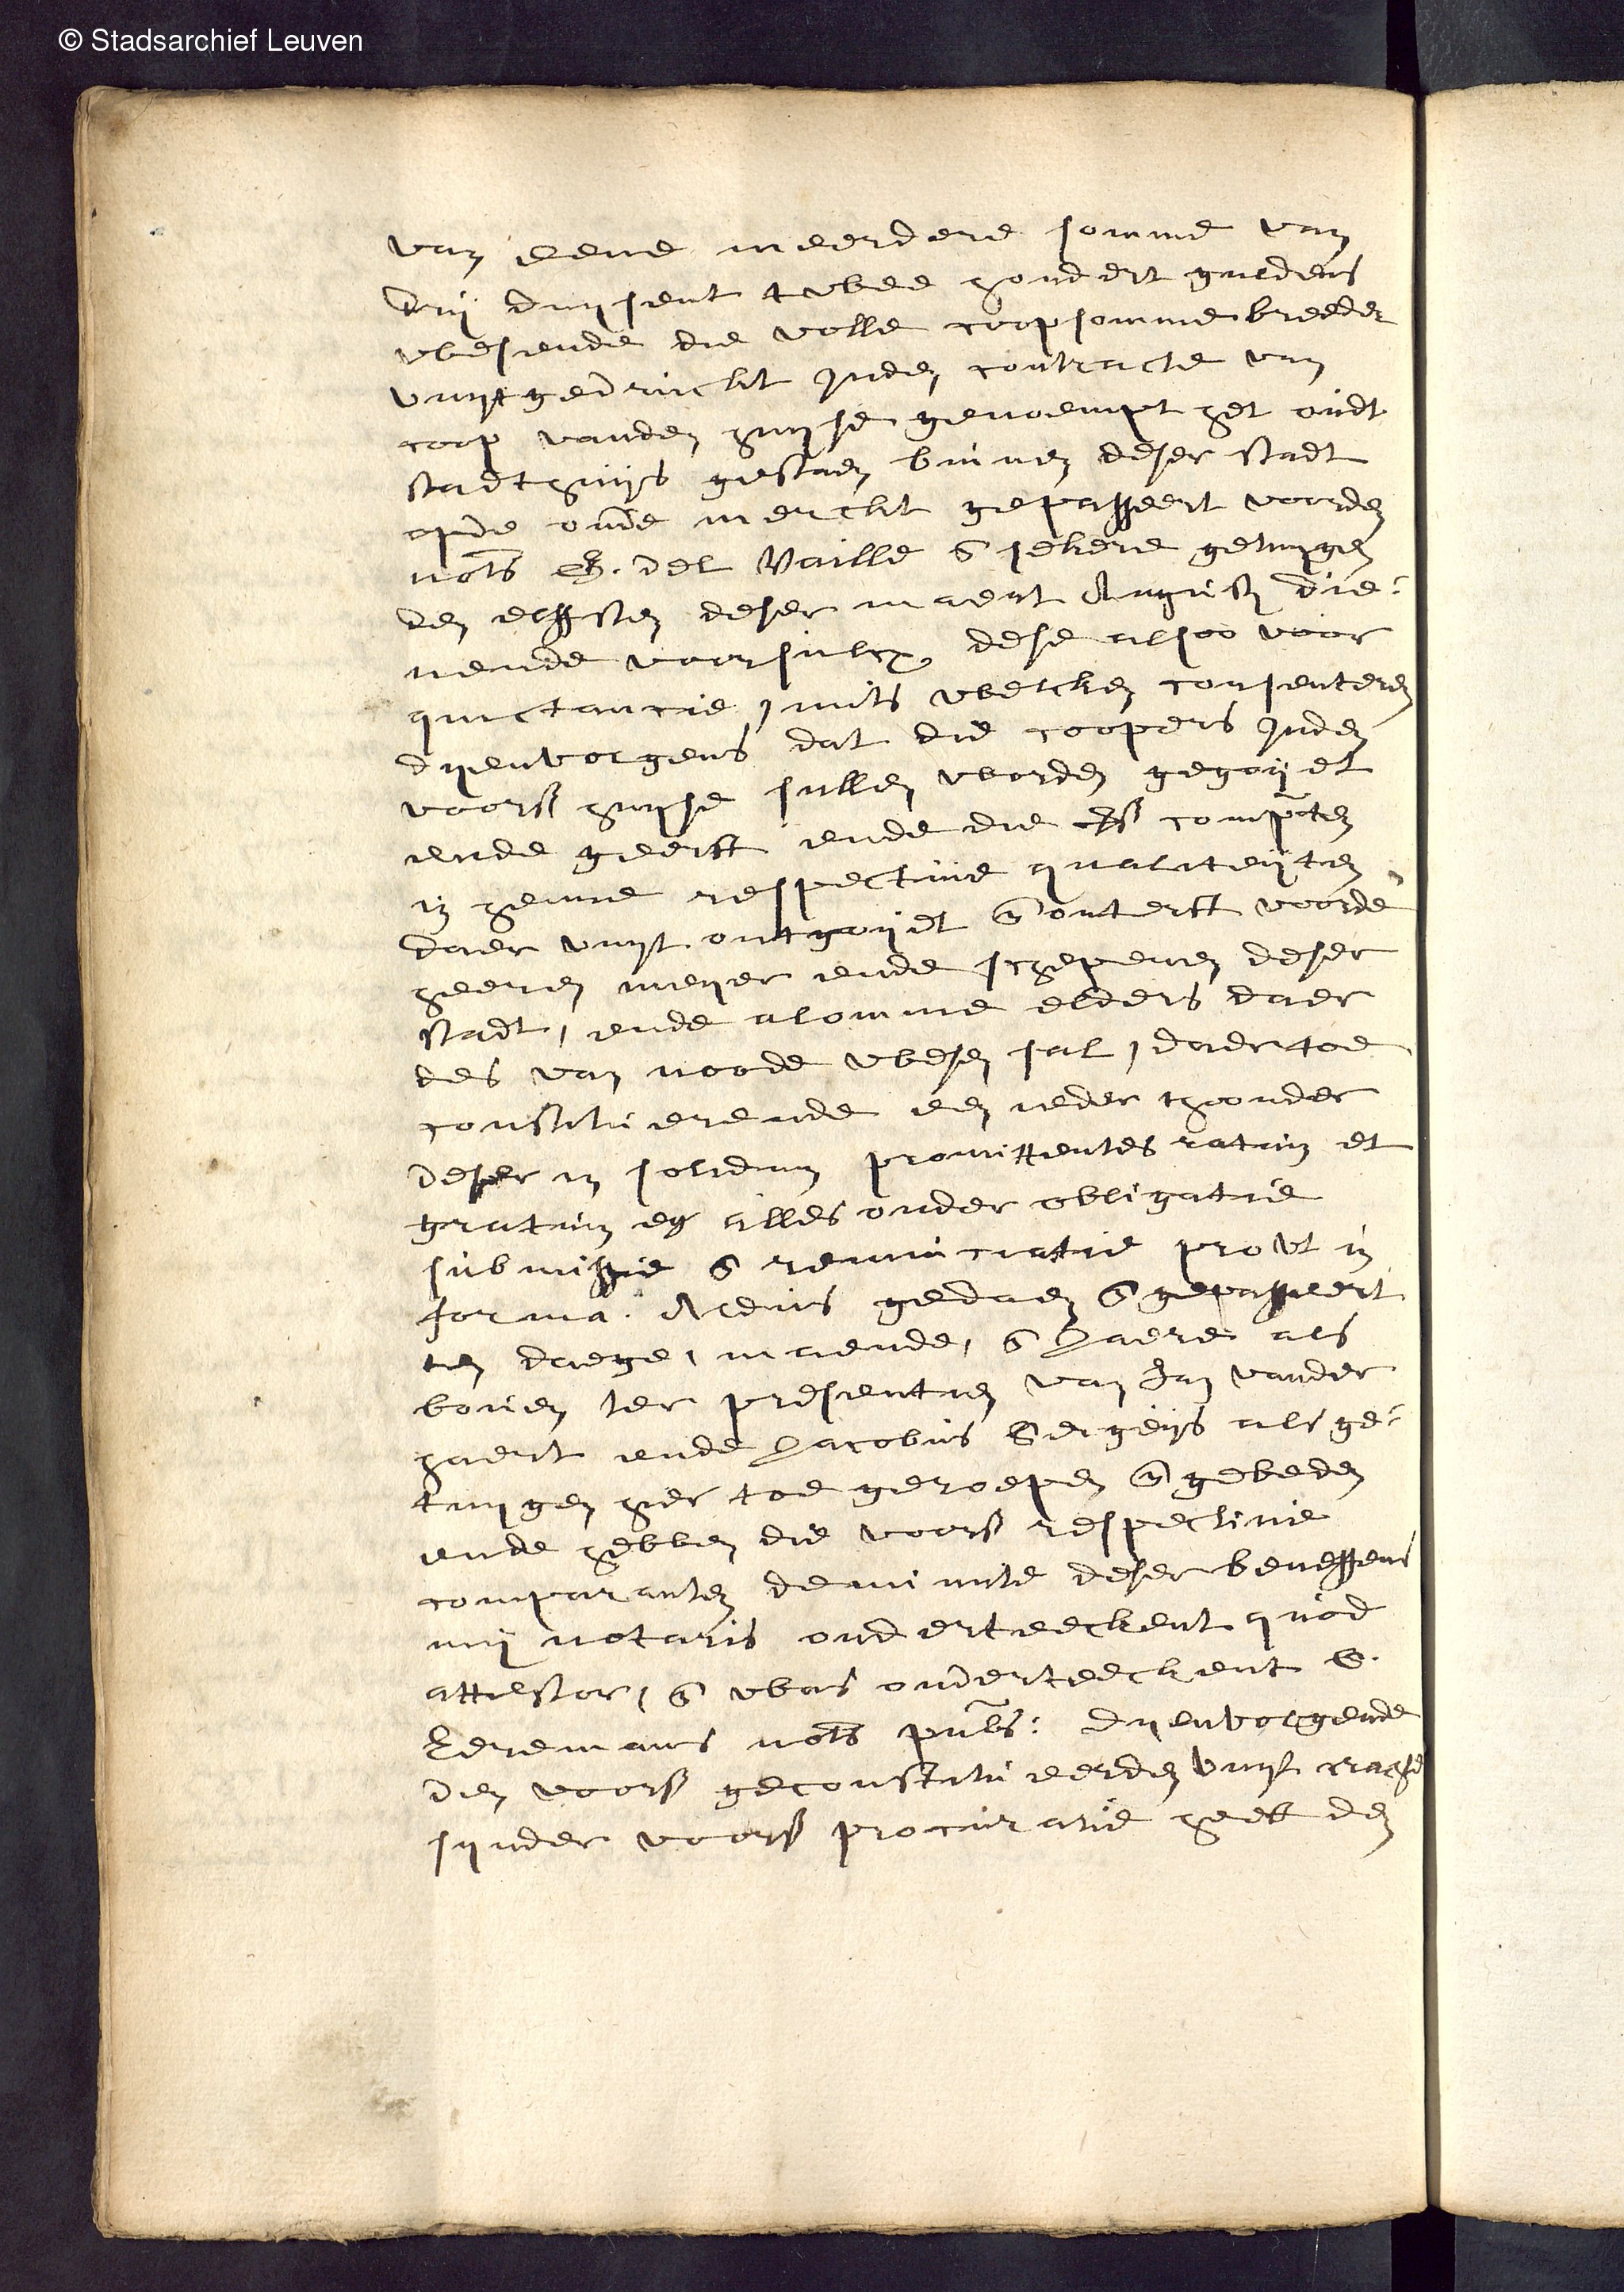 © Stadsarchief Leuven
van eene meerdere somme van
drij duysent twee hondert guldens
wesende die volle coopsomme breeder
vuytgedruckt inden contracte van
coop vanden huyse genoempt het oudt
stadthuijs gestaen binnen deser stadt
opde oude merckt gepasseert voorden
nots G. del Vaille ende sekere getuygen
den elffsten deser maent Augusti die-
nende voorsulcx dese alsoo voor
quictancie, mits welcken consenteren
dyenvolgens dat die coopers inden
voors huyse sullen worden gegoijt
ende geerft ende die compten
in henne respective qualiteijten
daer vuyt ontgoijt ende onterft voorde
heeren meyer ende schepenen deser
stadt, ende alomme elders daer
des van noode wesen sal, daer toe
constituerende een ieder thoonder
deser in solidum promittentes ratum et
gratum alles onder obligatie
submissie ende renunciatie prout in
forma. Aldus gedaen ende gepasseert
ten daege, maende, ende Jaere als
boven ter presentien van Jan vander
haert ende Jacobus Sergeijs als ge-
tuygen hier toe geroepen ende gebeden
ende hebben die voors respective
comparanten de minute deser beneffens
mij notaris onderteeckent quod
attestor, ende was onderteeckent G.
Leremans nots pubs: Dyenvolgende
den voors geconstitueerden vuyt crachte
synder voors procuratie heeft den